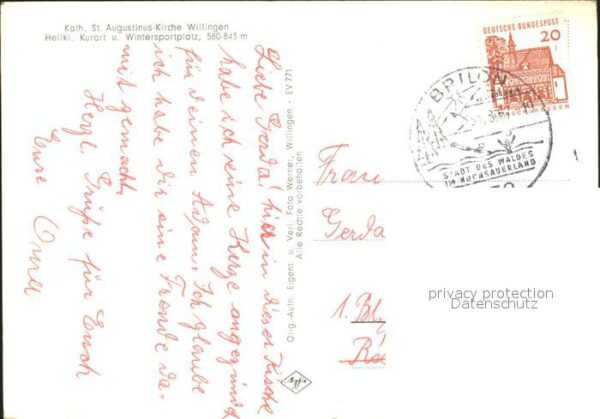 Kath. St. Augustinus-Kirche Willingen
Heilkl. Kurort u. Wintersportplatz, 580-843 m
Liebe Gerda! hier in dieser Kirche
habe ich eine Kerze angezündet
für deinen Adam. Ich glaube
ich habe dir eine Freude da-
mit gemacht,
Herzl. Grüße für Euch
Eure Oma
Orig.-Aufn. Eigent. u. Verl. Foto Werner, Willingen - EV 771
Alle Rechte vorbehalten
DEUTSCHE BUNDESPOST
20
BRILON
STADT DES WALDES
IM HOCHSAUERLAND
Frau
Gerda
1. Bl
privacy protection
Datenschutz